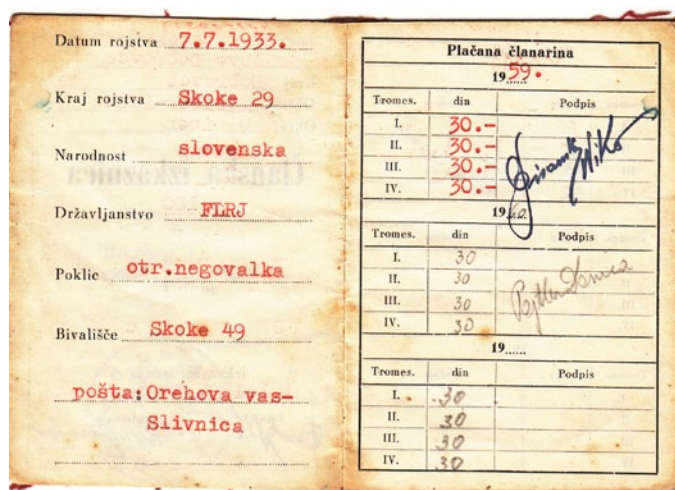 Datum rojstva 7.7.1933.
Kraj rojstva Skoke 29
Narodnost slovenska
Državljanstvo FLRJ
Poklic otr.negovalka
Bivališče Skoke 49
pošta:Orehova vas-
Slivnica
Plačana članarina
1959.
Tromes. din Podpis
I. 30.-
II. 30.-
III. 30.-
IV. 30.-
1960.
Tromes. din Podpis
I. 30
II. 30
III. 30
IV. 30
19
Tromes. din Podpis
I. 30
II. 30
III. 30
IV. 30